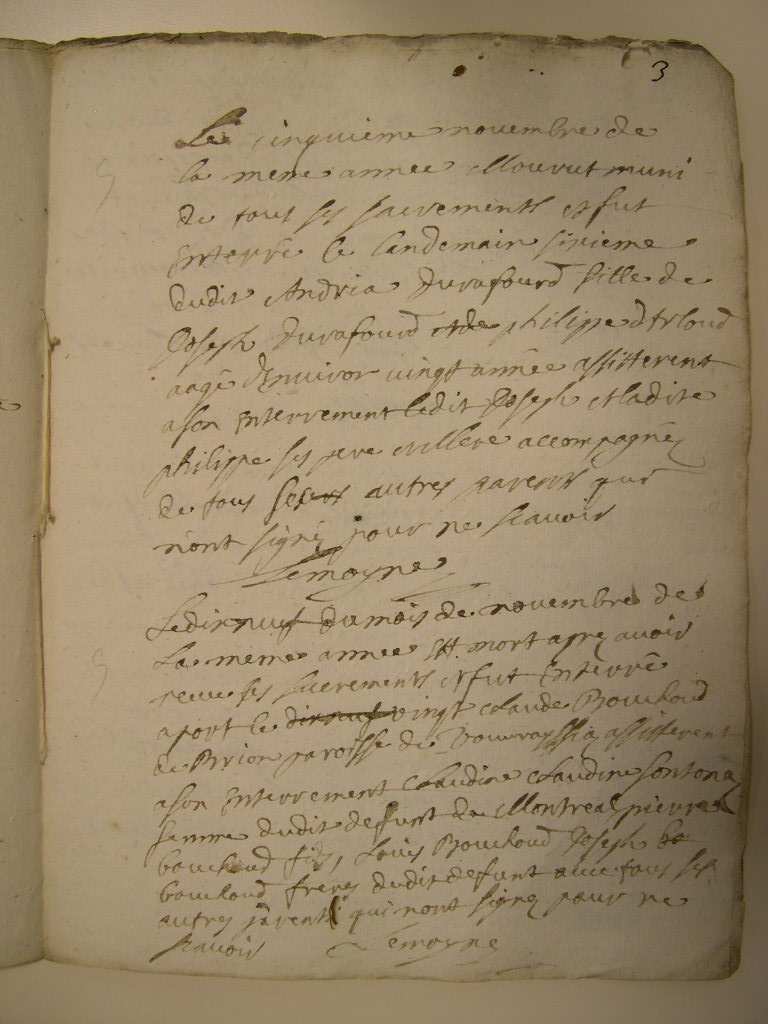 3
Le cinquieme novembre de
la meme annee Mourut muni
de tout ses sacrements et fut
Enterré le landemain sixieme
dudit Andria Durafourd fille de
Joseph Durafourd et de philippe
aagé denviron vingt année assisterent
a son Enterrement ledit Joseph et ladite
philippe ses pere et Mere accompagnéz
de tous ses autres parents qui
nont signé pour ne scavoir
Lemoyne
Le dixneuf du mois de novembre de
La meme annee Est mort aprez avoir
receu ses sacrements et fut Enterré
a port le dixneuf vingt Claude Bouchoud
de Brion paroisse de assisterent
a son Enterrement Claudine Claudine
femme dudit deffunt de Montreal pierre
bouchoud fils, Louis Bouchoud Joseph bo
bouchoud freres dudit defunt avec tous ses
autres parents qui nont signez pour ne
scavoir Lemoyne